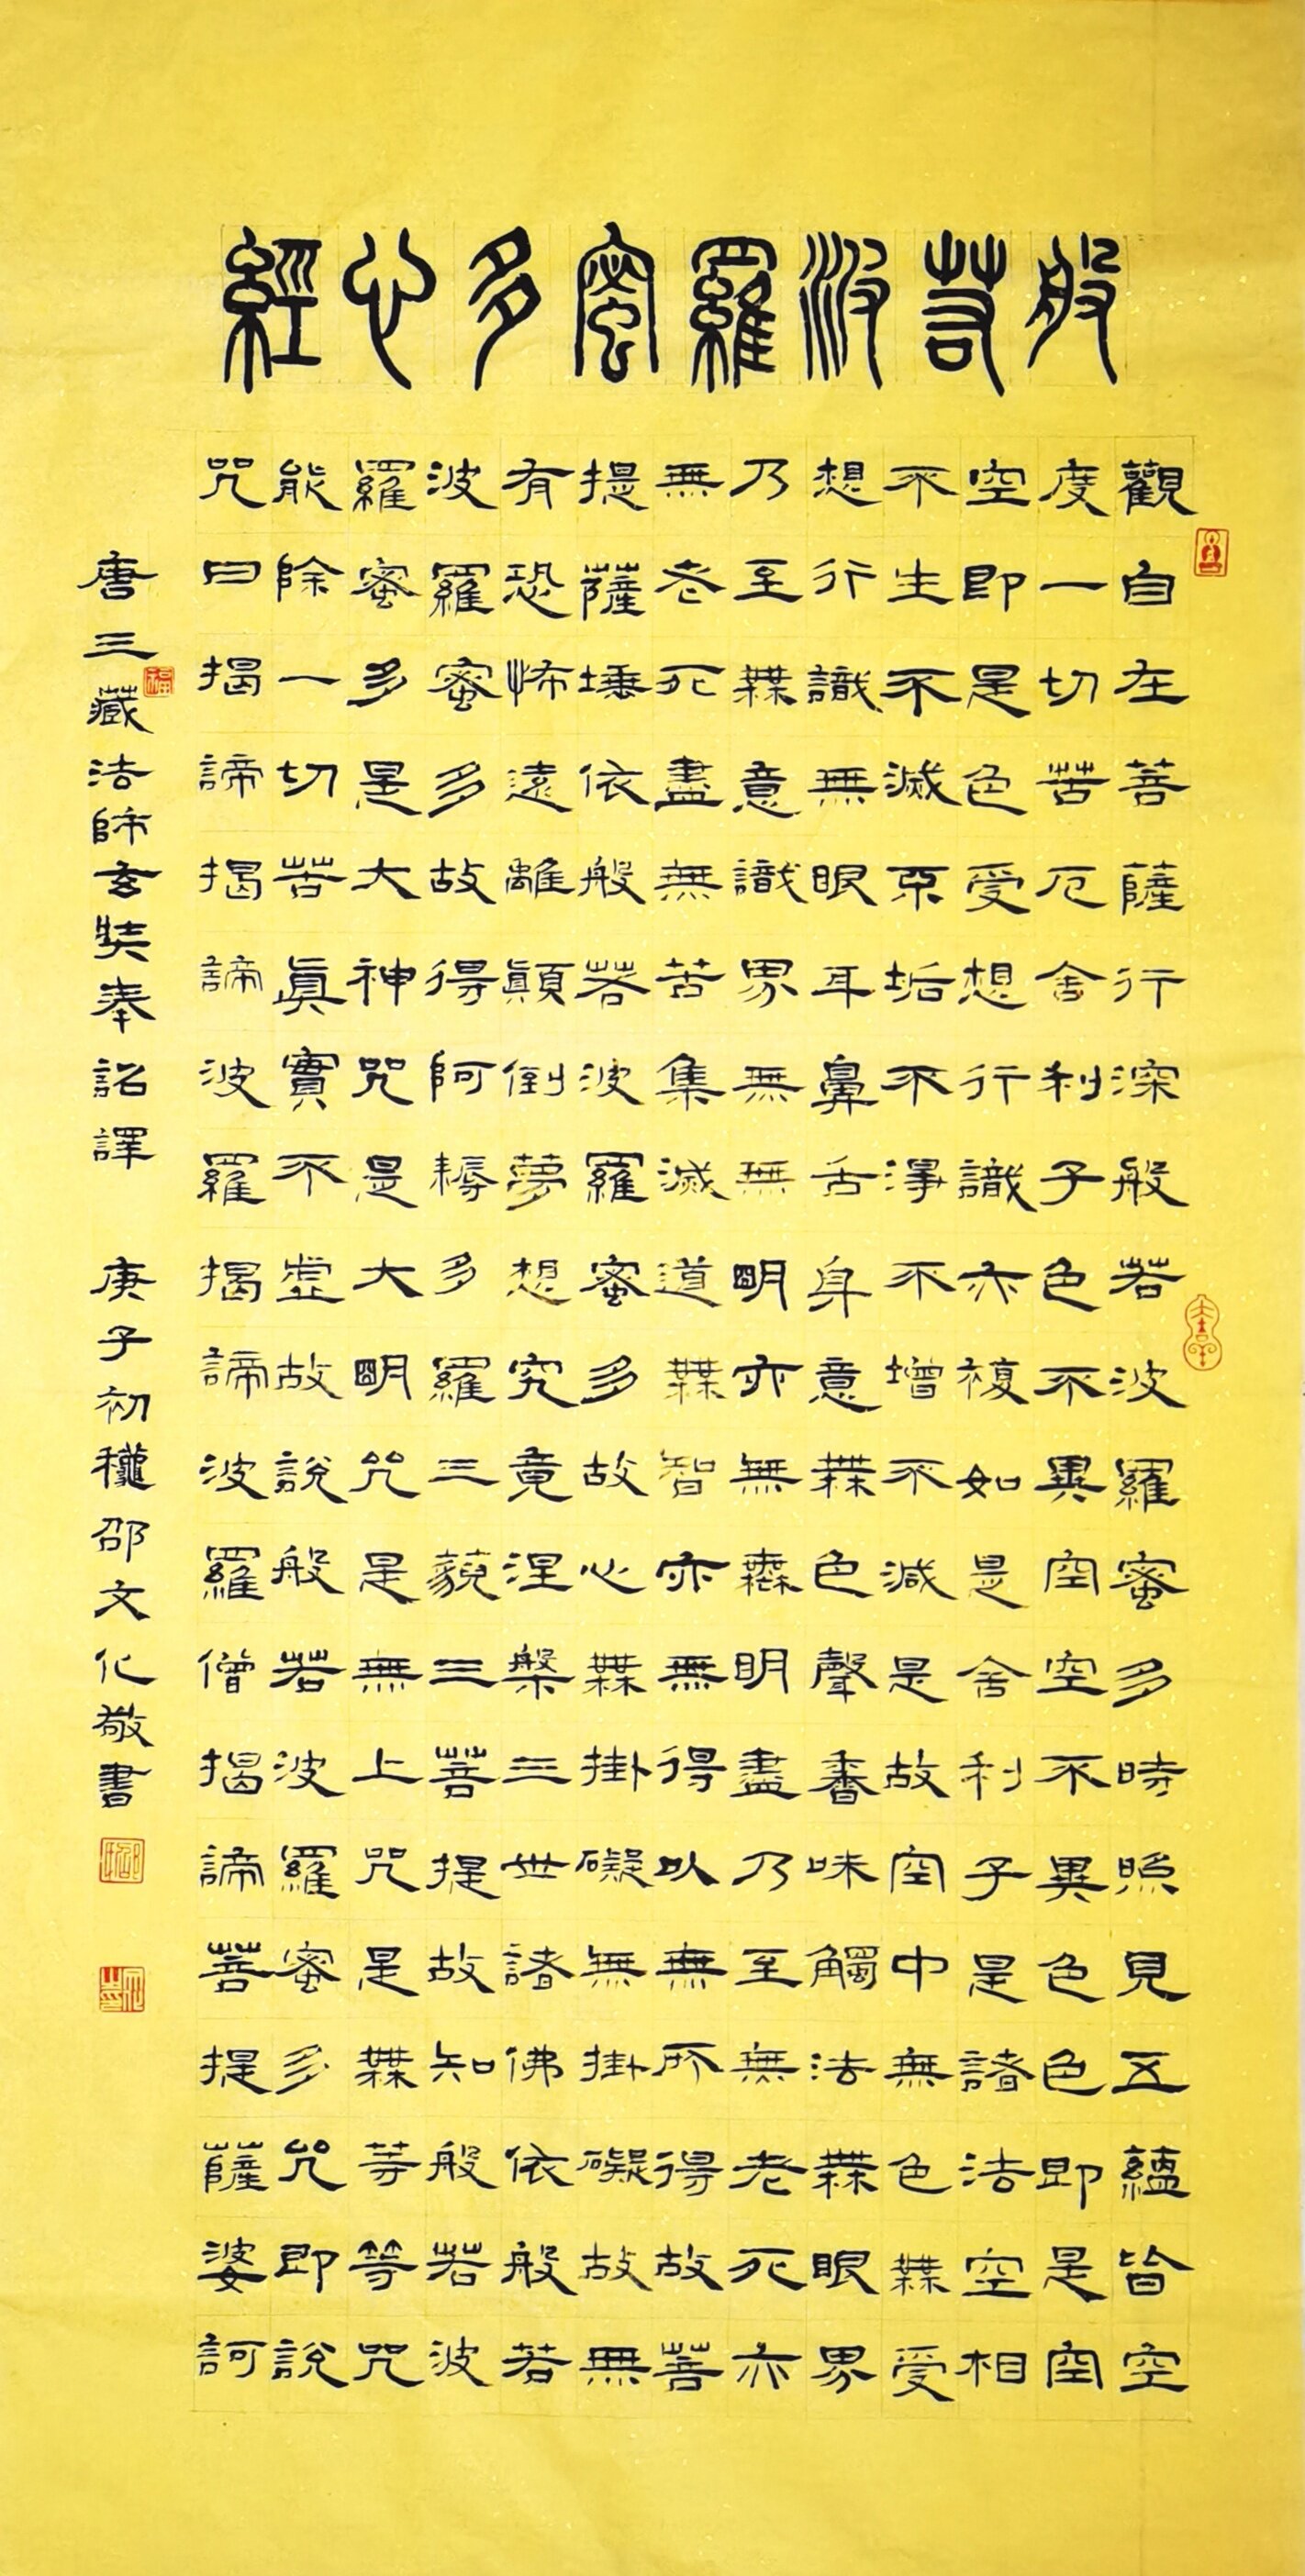 般若波羅蜜多心經
觀自在菩薩行深般若波羅蜜多時照見五蘊皆空
度一切苦厄舍利子色不異空空不異色色即是空
空即是色受想行識亦複如是舍利子是諸法空相
不生不滅不垢不淨不增不減是故空中無色無受
想行識無眼耳鼻舌身意無色聲香味觸法無眼界
乃至無意識界無無明亦無無明盡乃至無老死亦
無老死盡無苦集滅道無智亦無得以無所得故菩
提薩埵依般若波羅蜜多故心無掛礙無掛礙故無
有恐怖遠離顛倒夢想究竟涅槃三世諸佛依般若
波羅蜜多故得阿耨多羅三藐三菩提故知般若波
羅蜜多是大神咒是大明咒是無上咒是無等等咒
能除一切苦眞實不虛故說般若波羅蜜多咒即說
咒曰揭諦揭諦波羅揭諦波羅僧揭諦菩提薩婆訶
唐三藏法師玄奘奉詔譯 庚子初龝邵文化敬書
福